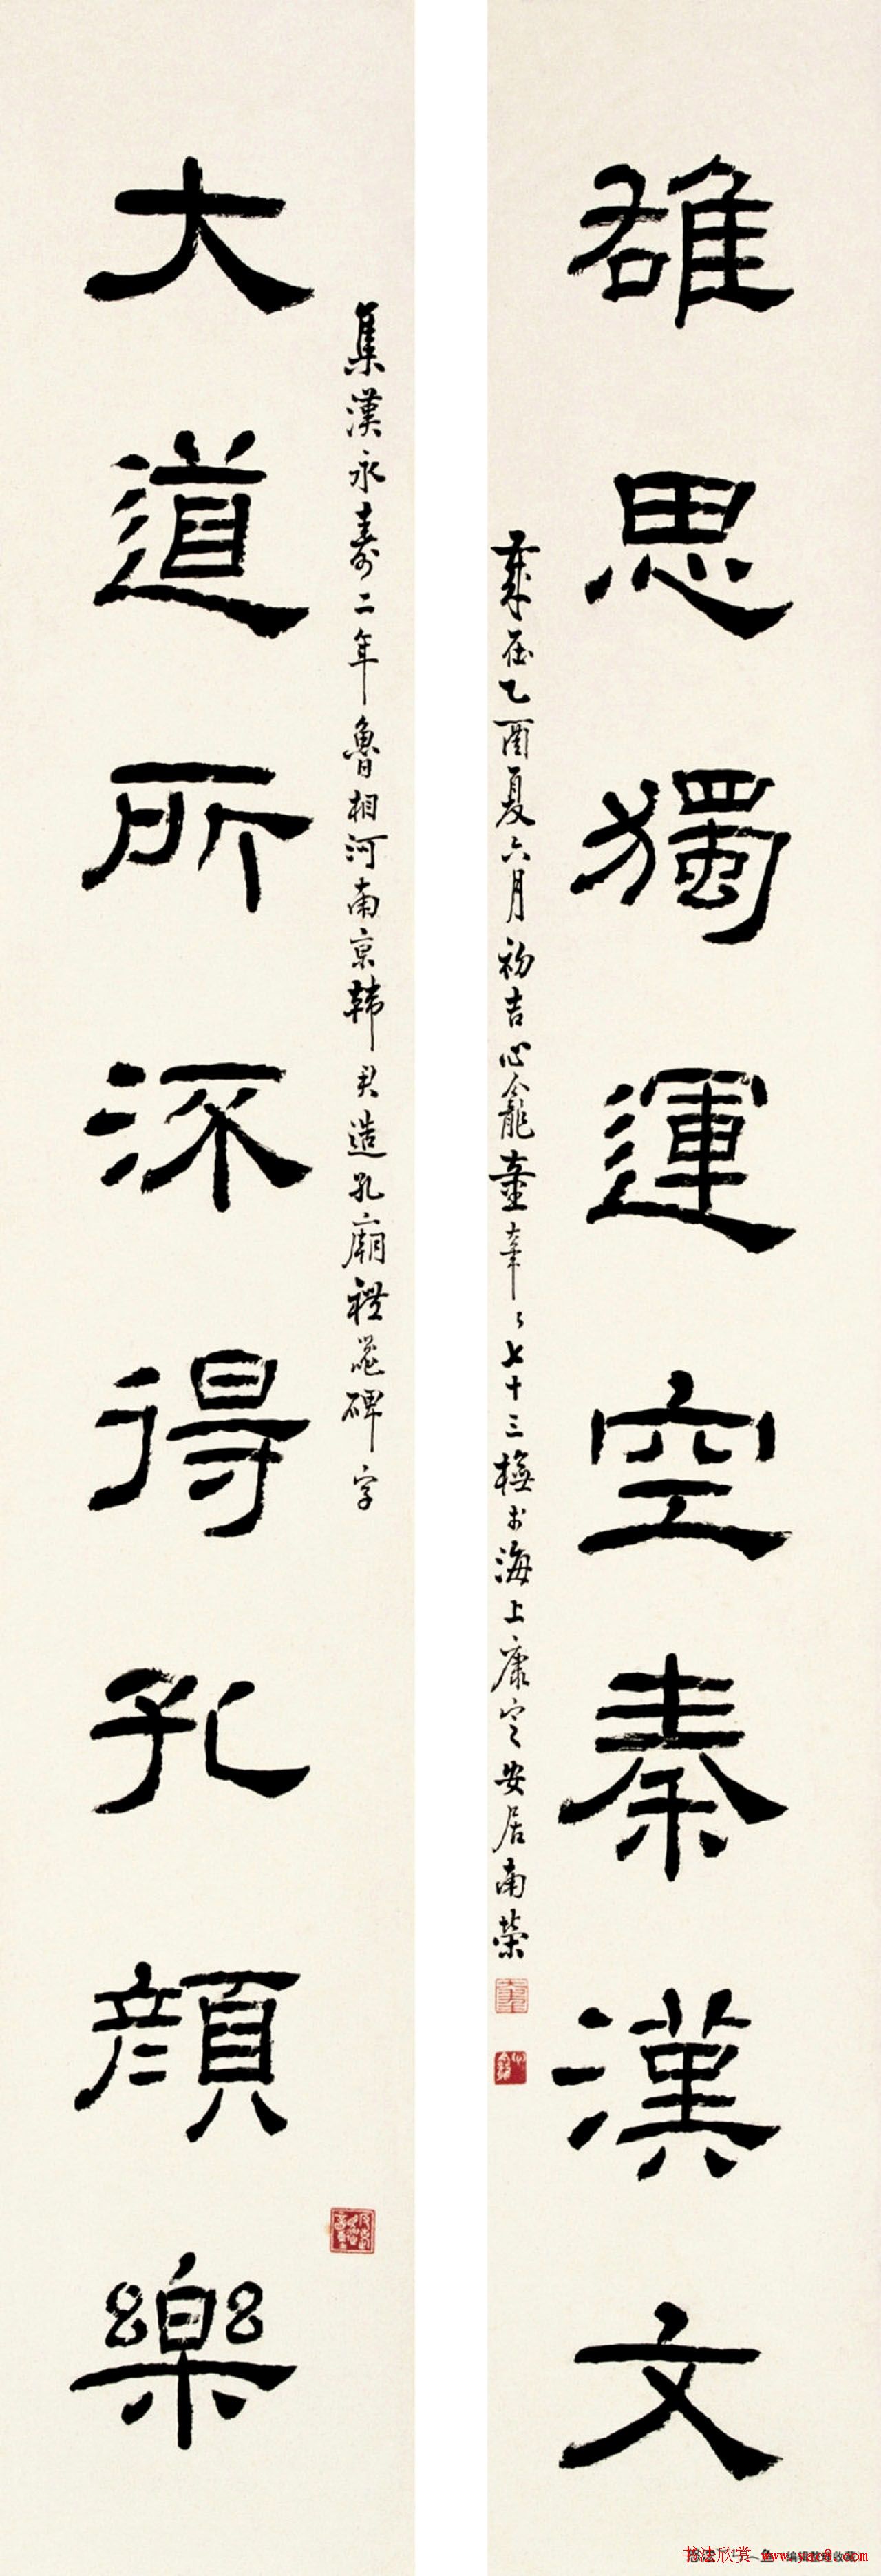 雄思獨運空秦漢文
歲在乙酉夏六月初吉心龕童大年〻七十三橅於海上康寧安居南榮
集漢永壽二年魯相河南京韓君造孔廟禮器碑字
大道所㳅得孔顏樂